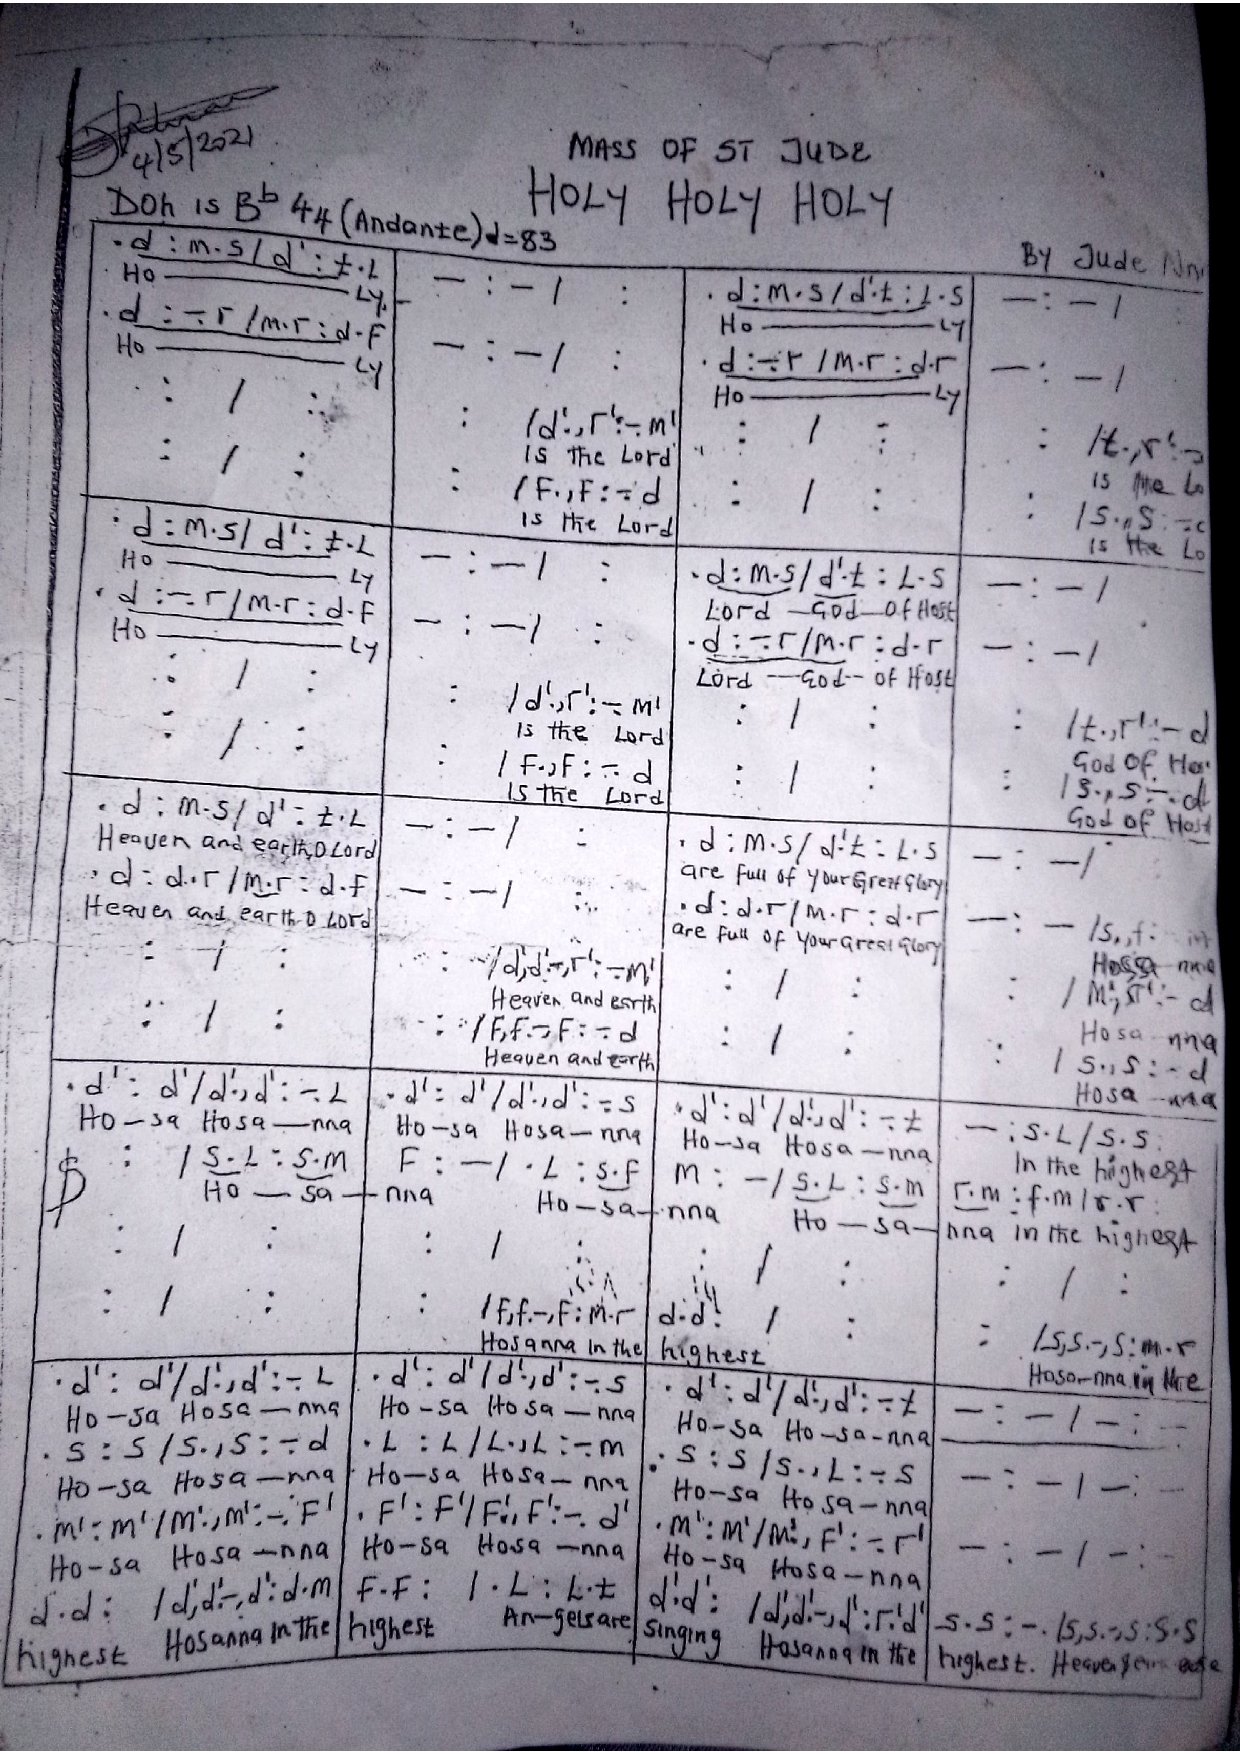 4/5/2021
MASS OF ST JUDE
HOLY HOLY HOLY
DOh is Bb 44 (Andante) d=83
By Jude
. d : m . s / d' : t . L
Ho — Ly
. d : -. r / m . r : d . F
Ho — Ly
: / :
: / :
— : — / :
— : — / :
: / d' ., r' : -. m'
Is the Lord
: / F ., F : -. d
is the Lord
. d : m . s / d' . t : L . s
Ho — Ly
. d : -. r / m . r : d . r
Ho — Ly
: / :
: / :
— : — / :
— : — /
: / t ., r' : -
is the Lo
: / s ., s : -.
is the Lo
. d : m . s / d' : t . L
Ho — Ly
. d : -. r / m . r : d . F
Ho — Ly
: / :
: / :
— : — / :
— : — / :
: / d' ., r' : -. m'
Is the Lord
: / F ., F : -. d
Is the Lord
. d : m . s / d' . t : L . s
Lord — God — Of Host
. d : -. r / m . r : d . r
Lord — God -- of Host
: / :
: / :
— : — /
— : — /
: / t ., r' : - d
God Of
: / s ., s : -. d
God of Host
. d : m . s / d' : t . L
Heaven and earth, O Lord
. d : d . r / m . r : d . F
Heaven and earth O Lord
: / :
: / :
— : — / :
— : — / :
: / d', d' -, r' : -. m'
Heaven and earth
: / F, f . -, F : -. d
Heaven and earth
. d : m . s / d' . t : L . s
are full of your Great Glory
. d : d . r / m . r : d . r
are full of your Great Glory
: / :
: / :
— : — /
— : — / s ., f :
Hossa - nna
: / m' ., r' : - d
Hosa - nna
: / s ., s : - d
Hosa - nna
. d' : d' / d' ., d' : -. L
Ho — sa Hosa — nna
: / s . L : s . m
Ho — sa — nna
: / :
: / :
. d' : d' / d' ., d' : -. s
Ho - sa Hosa — nna
F : — / . L : s . F
Ho — sa — nna
: / :
: / F, f . -, F : m . r
Hosanna in the
. d' : d' / d' ., d' : -. t
Ho - sa Hosa — nna
m : — / s . L : s . m
Ho — sa — nna
: / :
d . d : / :
highest
— : s . L / s . s :
In the highest
r . m : f . m / r . r :
in the highest
: / :
: / s, s . -, s : m . r
Hosa-nna in the
. d' : d' / d' ., d' : -. L
Ho - sa Hosa — nna
. s : s / s ., s : -. d
Ho - sa Hosa — nna
. m' : m' / m' ., m' : -. F'
Ho - sa Hosa — nna
d . d : / d', d' . -, d' : d . m
highest Hosanna in the
. d' : d' / d' ., d' : -. s
Ho - sa Hosa — nna
. L : L / L ., L : -. m
Ho - sa Hosa — nna
. F' : F' / F' ., F' : -. d'
Ho - sa Hosa — nna
F . F : / . L : L . t
highest An-gels are
. d' : d' / d' ., d' : -. t
Ho - sa Ho - sa - nna
. s : s / s ., L : -. s
Ho - sa Hosa — nna
. m' : m' / m' ., F' : -. r'
Ho - sa Hosa — nna
d' . d' : / d', d' . -, d' : r' . d'
singing Hosanna in the
— : — / — : —
— : — / — : —
— : — / — : —
s . s : - . / s, s . -, s : s . s
highest. Heaven